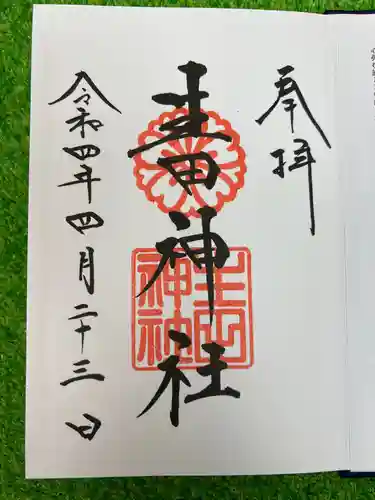 奉拝
生田神社
生田
神社
令和四年四月二十三日